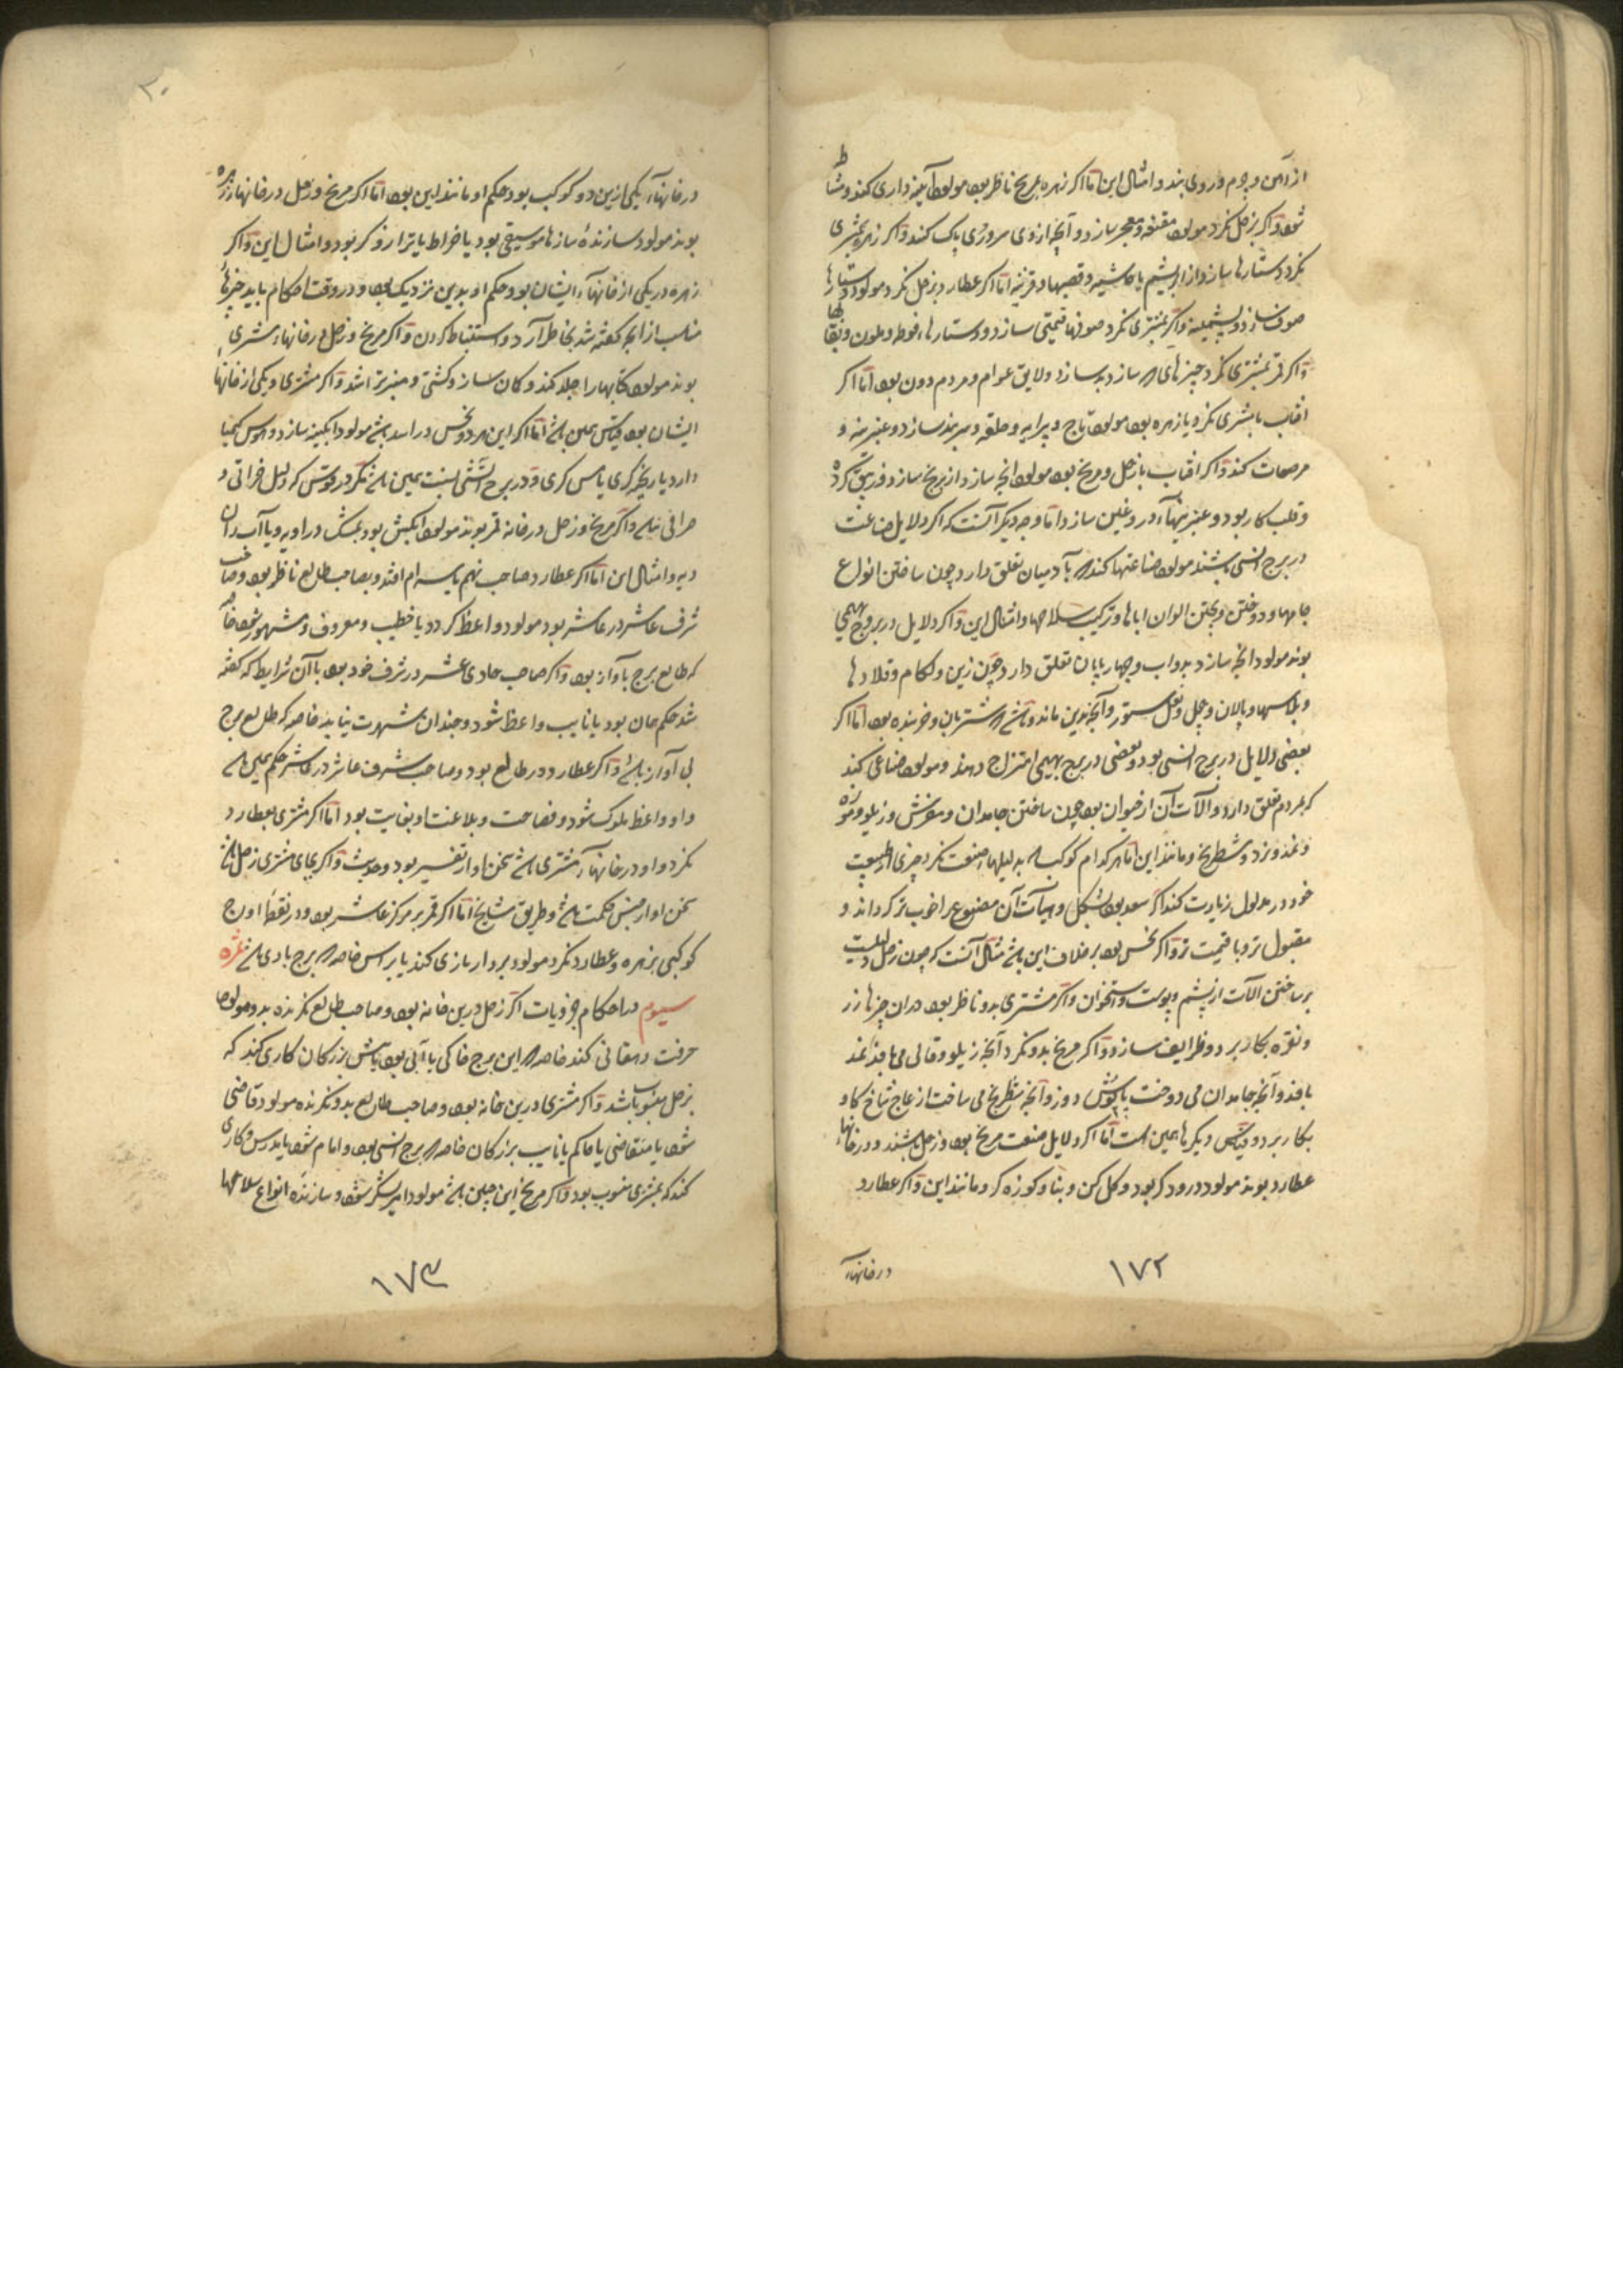 از آهن و جرم و روی بند و امثال این اما اکر زهره بمریخ ناظر بود مولود آیینه داری کند و مشاط
شود و اکر بزحل نکرد مولود مقنعه و معجر سازد و آنچه از وی سر و روی پاک کنند و اکر زهره بمشتری
نکرد دستارها سازد از ابریشم با حاشیه و قصبها و قرینه اما اکر عطارد بزحل نکرد مولود دستارها
صوف سازد و پشمینه و اکر بمشتری نکرد صوفها قیمتی سازد و دستارها، فوطه و ملون و بقا
و اکر قمر بمشتری نکرد چیزهای که سازد بد سازد و لایق عوام و مردم دون بود اما اکر
افتاب با مشتری نکرد یا زهره بود مولود تاج و پیرایه و حلقه و سربند سازد و عنبرینه و
مرصعات کند و اکر افتاب با زحل و مریخ بود مولود انچه سازد از برنج سازد و زیبق کرده
و قلب کار بود و عنبرینها، دروغین سازد اما وجه دیکر آنست که اکر دلایل صناعت
در برج انسی باشند مولود صناعتها کند که بآدمیان تعلق دارد چون ساختن انواع
جامها و دوختن و پختن الوان اباها و ترکیب سلاحها و امثال این و اکر دلایل در بروج بهیمی
بوند مولود انچه سازد بدواب و چهارپایان تعلق دارد چون زین و لکام و قلادها
و پلاسها و پالان و جل و نعل ستور و آنچه بدین ماند و باشد که شتربان و خربنده بود اما اکر
بعضی دلایل در برج انسی بود و بعضی در برج بهیمی امتزاج دهند و مولود صناعی کند
که بمردم تعلق دارد و آلات آن از حیوان بود چون ساختن جامدان و مفرش و زیلو و موزه
و نمد و نرد و شطرنج و مانند این اما هر کدام کوکب که بدلیلها، صنعت نکرد چیزی از طبیعت
خود در مدلول زیادت کند اکر سعد بود شکل و هیآت آن مصنوع را خوب تر کرداند و
مقبول تر و با قیمت تر و اکر نحس بود بر خلاف این باشد مثال آنست که چون زحل دلیلست
بر ساختن آلات از پشم و پوست و استخوان و اکر مشتری بدو ناظر بود در ان چیزها زر
و نقره بکار برد و ظرایف سازد و اکر مریخ بدو نکرد آنچه زیلو و قالی می بافد نمد
بافد و آنچه جامدان می دوخت پاپوش دوزد و آنچه شطرنج می ساخت از عاج شاخ کاو
بکار برد و قیاس دیکرها همین است اما اکر دلایل صنعت مریخ بود و زحل باشند و در خانهاء
عطارد بوند مولود درودکر بود و کل کن و بنا و کوزه کر و مانند این و اکر عطارد
در خانهاء
۱۷۲
۲۰
در خانهاء یکی ازین دو کوکب بود حکم او مانند این بود اما اکر مریخ و زحل در خانهاء زهره
بوند مولود سازنده سازها موسیقی بود یا خراط یا ترازوکر بود و امثال این و اکر
زهره در یکی از خانهاء ایشان بود حکم او بدین نزدیک بود و در وقت احکام باید چیزهاء
مناسب از انچه کفته شد بخاطر آرد و استنباط کردن و اکر مریخ و زحل در خانهاء مشتری
بوند مولود کتابها را جلد کند و کمان سازد و کشتی و منبر تراشد و اکر مشتری در یکی از خانهاء
ایشان بود قیاس همین باشد اما اکر این هر دو نحس در اسد باشد مولود آبکینه سازد و هوس کیمیا
دارد یا ریخته کری یا مس کری و در برج آتشی نسبت همین باشد مکر در قوس که دلیل خراطی و
صرافی باشد و اکر مریخ و زحل در خانه قمر بوند مولود ابکش بود بمشک در راویه و یا آب دان
دیه و امثال این اما اکر عطارد صاحب نهم یا سیوم افتد و بصاحب طالع ناظر بود و صاحب
شرف عاشر در عاشر بود مولود واعظ کردد یا خطیب و معروف و مشهور شود خاصه
که طالع برج با آواز بود و اکر صاحب حادی عشر در شرف خود بود با آن شرایط که کفته
شد حکم همان بود یا نایب واعظ شود و چندان شهرت نیابد خاصه که طالع برج
بی آواز باشد و اکر عطارد در طالع بود و صاحب شرف عاشر در عاشر حکم همین باشد
و او واعظ ملوک شود و فصاحت و بلاغت او بغایت بود اما اکر مشتری بعطارد
نکرد و او در خانهاء مشتری باشد سخن او از تفسیر بود و حدیث و اکر بجای مشتری زحل باشد
سخن او از جنس حکمت باشد و طریق مشایخ اما اکر قمر بر مرکز عاشر بود و در نقطه اوج
کوکبی بزهره و عطارد نکرد مولود بر دار بازی کند یا بر اسن خاصه که برج بادی باشد ثمره
سیوم در احکام جزویات اکر زحل درین خانه بود و صاحب طالع نکرنده بدو مولود
حرفت دهقانی کند خاصه که این برج خاکی یا آبی بود یا پیش بزرکان کاری کند که
بزحل منسوب باشد و اکر مشتری درین خانه بود و صاحب طالع بدو نکرنده مولود قاضی
شود یا متقاضی یا حاکم یا نایب بزرکان خاصه که برج انسی بود و امام شود یا مدرس و کاری
کند که بمشتری منسوب بود و اکر مریخ این چنین باشد مولود امیر لشکر شود و سازنده انواع سلاحها
۱۷۳